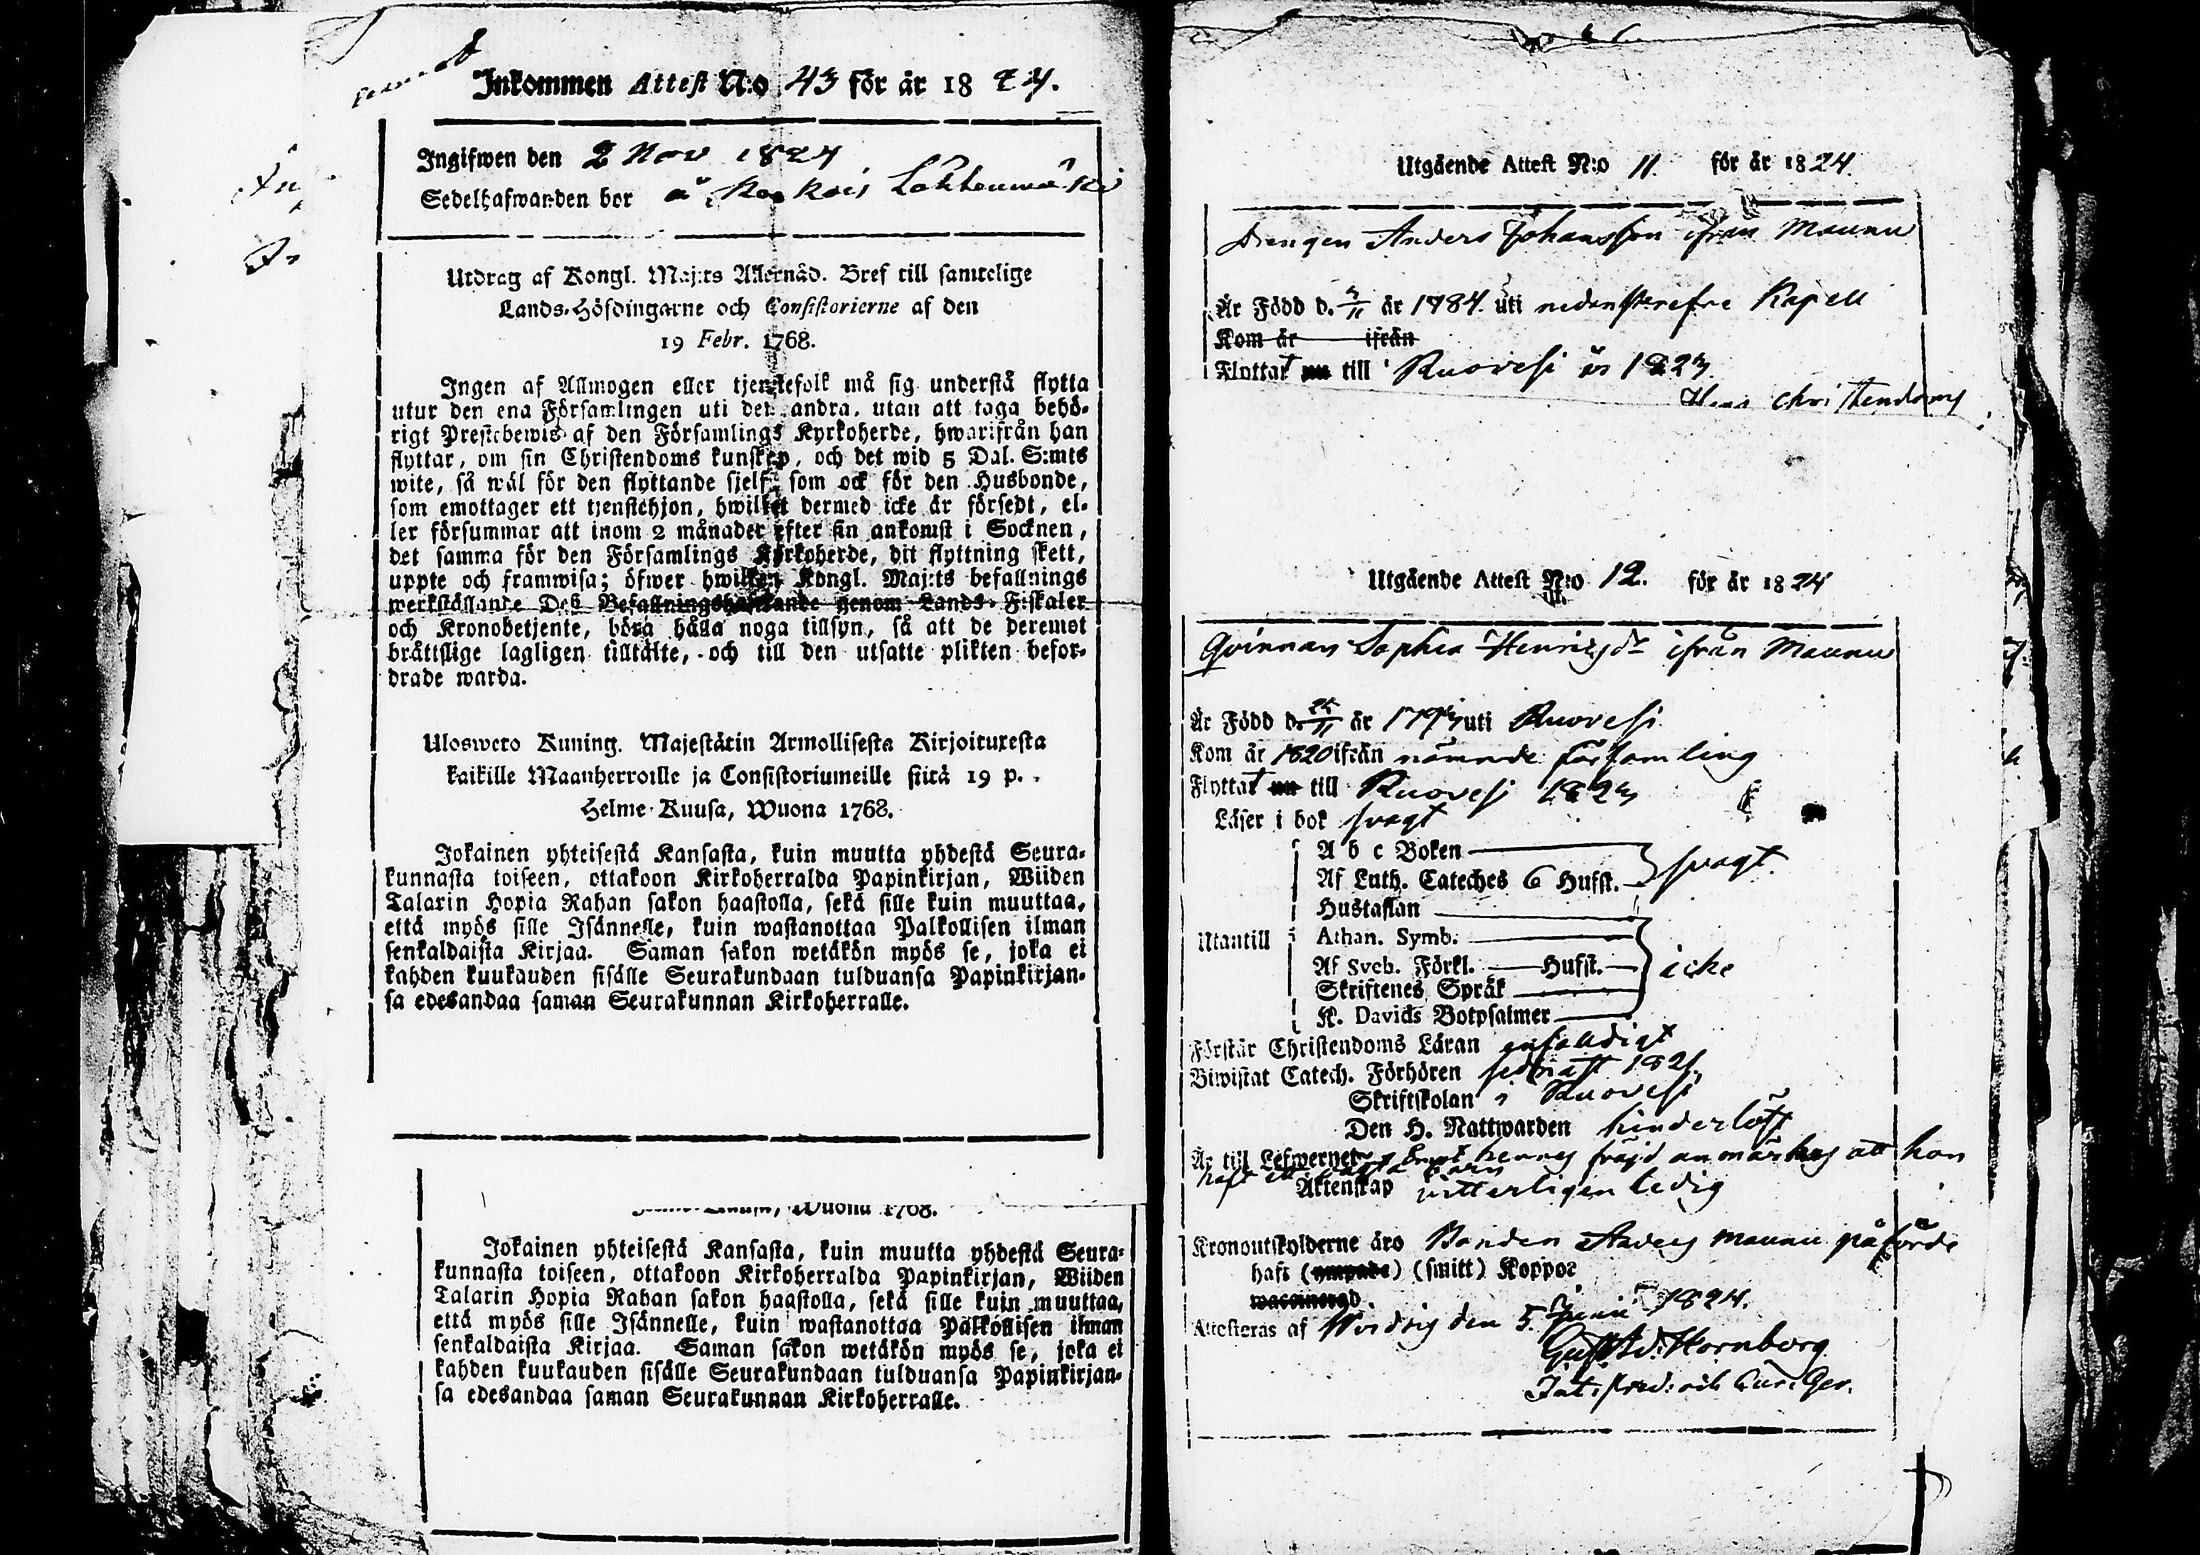 Inkommen Attest N:o 43 för år 1824.
Ingifwen den 2 Nov 1824
Sedelhafwanden bor å Lahtenmäki
Utdrag af Kongl. Maj:ts Allernåd. Bref till samtelige
Lands-Höfdingarne och Consistorierne af den
19 Febr. 1768.
Ingen af Allmogen eller tjenstefolk må sig understå flytta
utur den ena Församlingen uti den andra, utan att taga behö-
rigt Prestebewis af den Församlings Kyrkoherde, hwarifrån han
flyttar, om sin Christendoms kunskap, och det wid 5 Dal. S:mts
wite, så wäl för den flyttande sjelf, som ock för den Husbonde,
som emottager ett tjenstehjon, hwilket dermed icke är försedt, el-
ler försummar att inom 2 månader efter sin ankomst i Socknen,
det samma för den Församlings Kyrkoherde, dit flyttning skett,
uppte och framwisa; öfwer hwilken Kongl. Maj:ts befallnings
werkställande Deß Befallningshafwande genom Lands-Fiskaler
och Kronobetjente, böra hålla noga tillsyn, så att de deremot
bråttslige lagligen tilltalte, och till den utsatte plikten befor-
drade warda.
Ulosweto Kuning. Majestätin Armollisesta Kirjoituxesta
kaikille Maanherroille ja Consistoriumeille siitä 19 p.
Helme-Kuusa, Wuona 1768.
Jokainen yhteisestä Kansasta, kuin muutta yhdestä Seura-
kunnasta toiseen, ottakoon Kirkoherralda Papinkirjan, Wiiden
Talarin Hopia Rahan sakon haastolla, sekä sille kuin muuttaa,
että myös sille Isännelle, kuin wastanottaa Palkollisen ilman
senkaldaista Kirjaa. Saman sakon wetäkön myös se, joka ei
kahden kuukauden sisälle Seurakundaan tulduansa Papinkirjan-
sa edesandaa saman Seurakunnan Kirkoherralle.
Wuona 1768.
Jokainen yhteisestä Kansasta, kuin muutta yhdestä Seura-
kunnasta toiseen, ottakoon Kirkoherralda Papinkirjan, Wiiden
Talarin Hopia Rahan sakon haastolla, sekä sille kuin muuttaa,
että myös sille Isännelle, kuin wastanottaa Palkollisen ilman
senkaldaista Kirjaa. Saman sakon wetäkön myös se, joka ei
kahden kuukauden sisälle Seurakundaan tulduansa Papinkirjan-
sa edesandaa saman Seurakunnan Kirkoherralle.
Utgående Attest N:o 11. för år 1824.
Drengen Anders Johansson ifrån Maunu
Är Född d. år 1784. uti Kapell
Kom år ifrån
Flyttat nu till Ruovesi år 1823.
Hans Christendoms
Utgående Attest N:o 12. för år 1824
Qvinnan Sophia Henricsdr ifrån Maunu
Är Född d. år uti Ruovesi
Kom år 1820 ifrån nämnde församling
Flyttat nu till Ruovesi 1823
Läser i bok svagt
Utantill
A b c Boken
Af Luth. Cateches 6 Hufst. svagt.
Hustaflan
Athan. Symb.
Af Sveb. Förkl. Hufst. icke
Skriftenes Språk
K. Davids Botpsalmer
Förstår Christendoms Läran enfaldigt
Biwistat Catech. Förhören sednast 1821.
Skriftskolan i Ruovesi
Den H. Nattwarden hinderlöst
Är till Lefwernet hennes fräjd anmärkes att hon
haft ett barn
Äktenskap witterligen ledig
Kronoutskylderne äro Bonden Maunu påförde
haft (ympade) (smitt) Koppor
waccinerad.
Attesteras af den 5 Junii 1824.
Gust. Ad. Hornborg